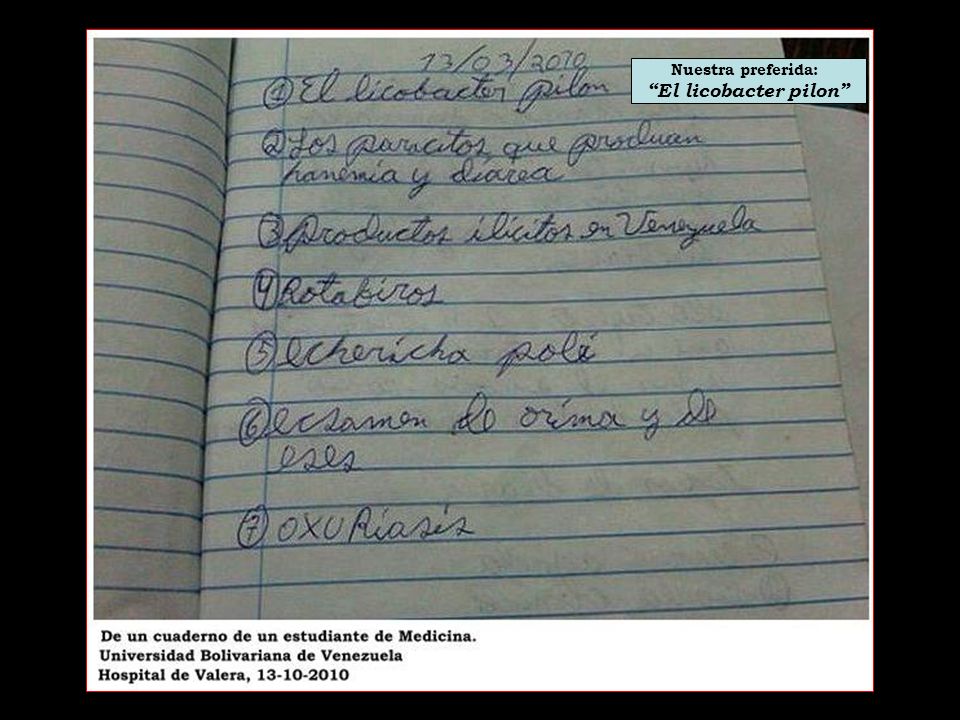 13/03/2010
Nuestra preferida:
“El licobacter pilon”
① El licobacter pilon
② Los paracitos que produan
hanemia y diarea
③ productos ilicitos en Venezuela
④ Rotabiros
⑤ echericha poli
⑥ ecsamen de orima y de
eses
⑦ OXURiasis
De un cuaderno de un estudiante de Medicina.
Universidad Bolivariana de Venezuela
Hospital de Valera, 13-10-2010